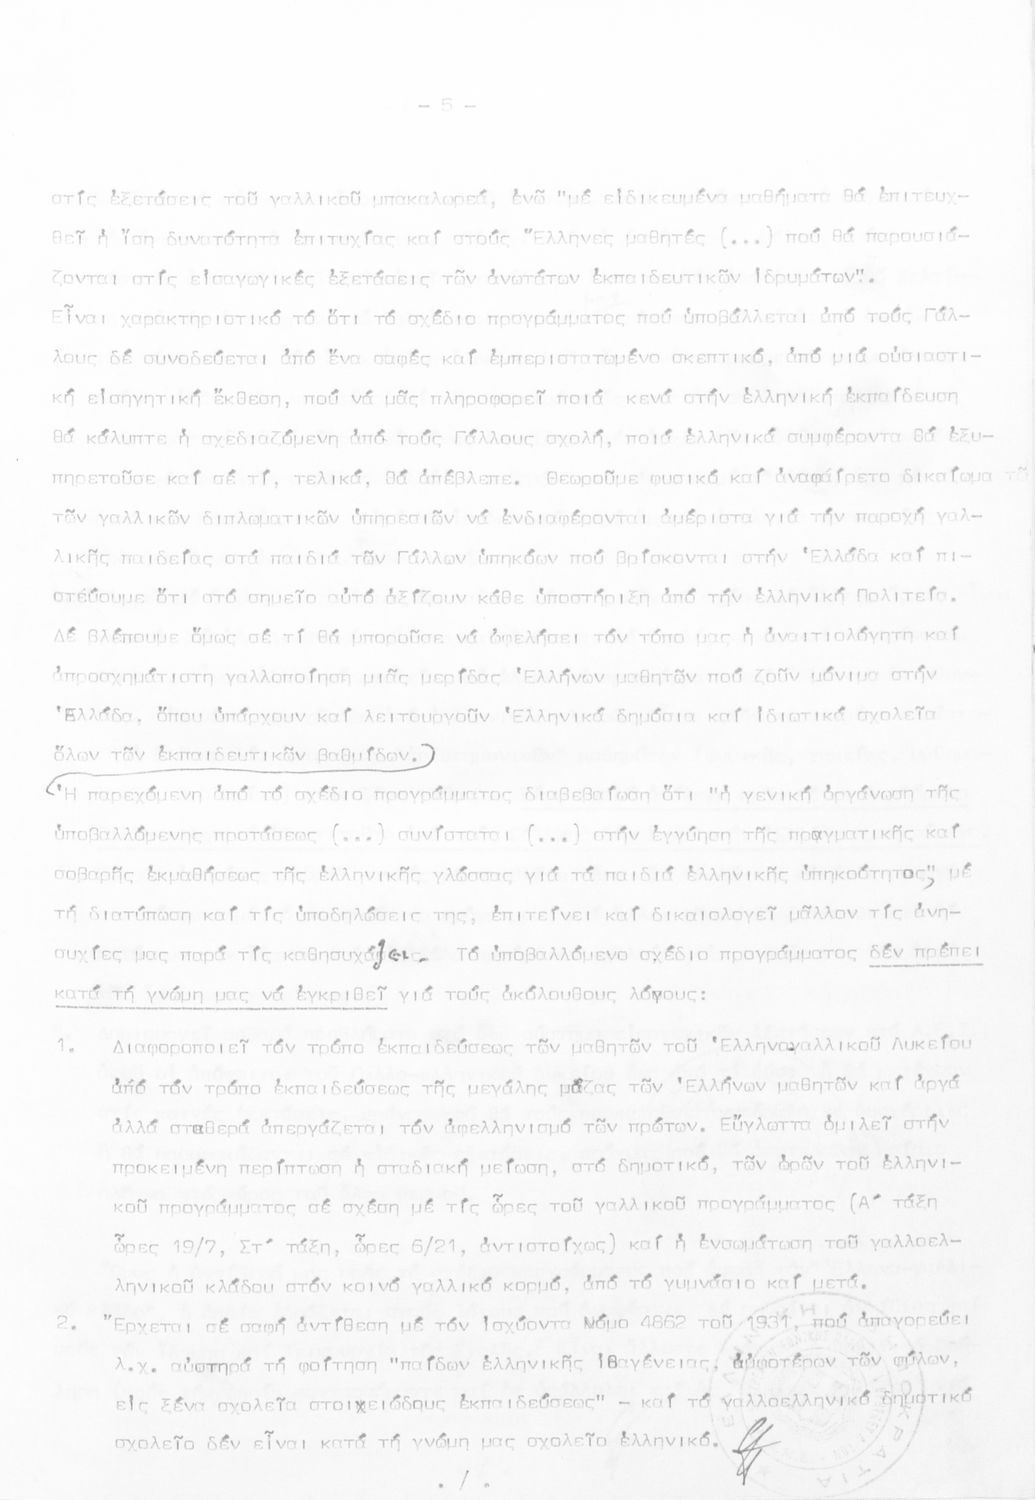 - 5 -
στίς ἐξετάσεις τοῦ γαλλικοῦ μπακαλορεά, ἐνῶ "μέ εἰδικευμένα μαθήματα θά ἐπιτευχ-
θεῖ ἡ ἴση δυνατότητα ἐπιτυχίας καί στούς Ἕλληνες μαθητές (...) πού θά παρουσιά-
ζονται στίς εἰσαγωγικές ἐξετάσεις τῶν ἀνωτάτων ἐκπαιδευτικῶν ἱδρυμάτων".
Εἶναι χαρακτηριστικό τό ὅτι τό σχέδιο προγράμματος πού ὑποβάλλεται ἀπό τούς Γάλ-
λους δέ συνοδεύεται ἀπό ἕνα σαφές καί ἐμπεριστατωμένο σκεπτικό, ἀπό μιά οὐσιαστι-
κή εἰσηγητική ἔκθεση, πού νά μᾶς πληροφορεῖ ποιά κενά στήν ἑλληνική ἐκπαίδευση
θά κάλυπτε ἡ σχεδιαζόμενη ἀπό τούς Γάλλους σχολή, ποιά ἑλληνικά συμφέροντα θά ἐξυ-
πηρετοῦσε καί σέ τί, τελικά, θά ἀπέβλεπε. Θεωροῦμε φυσικό καί ἀναφαίρετο δικαίωμα τῶ
τῶν γαλλικῶν διπλωματικῶν ὑπηρεσιῶν νά ἐνδιαφέρονται ἀμέριστα γιά τήν παροχή γαλ-
λικῆς παιδείας στά παιδιά τῶν Γάλλων ὑπηκόων πού βρίσκονται στήν Ἑλλάδα καί πι-
στεύουμε ὅτι στό σημεῖο αὐτό ἀξίζουν κάθε ὑποστήριξη ἀπό τήν ἑλληνική Πολιτεία.
Δέ βλέπουμε ὅμως σέ τί θά μποροῦσε νά ὠφελήσει τόν τόπο μας ἡ ἀναιτιολόγητη καί
ἀπροσχημάτιστη γαλλοποίηση μιᾶς μερίδας Ἑλλήνων μαθητῶν πού ζοῦν μόνιμα στήν
Ἑλλάδα, ὅπου ὑπάρχουν καί λειτουργοῦν Ἑλληνικά δημόσια καί ἰδιωτικά σχολεῖα
ὅλων τῶν ἐκπαιδευτικῶν βαθμίδων.
Ἡ παρεχόμενη ἀπό τό σχέδιο προγράμματος διαβεβαίωση ὅτι "ἡ γενική ὀργάνωση τῆς
ὑποβαλλόμενης προτάσεως (...) συνίσταται (...) στήν ἐγγύηση τῆς πραγματικῆς καί
σοβαρῆς ἐκμαθήσεως τῆς ἑλληνικῆς γλώσσας γιά τά παιδιά ἑλληνικῆς ὑπηκοότητος", μέ
τή διατύπωση καί τίς ὑποδηλώσεις της, ἐπιτείνει καί δικαιολογεῖ μᾶλλον τίς ἀνη-
συχίες μας παρά τίς καθησυχάζει. Τό ὑποβαλλόμενο σχέδιο προγράμματος δέν πρέπει
κατά τή γνώμη μας νά ἐγκριθεῖ γιά τούς ἀκόλουθους λόγους:
1. Διαφοροποιεῖ τόν τρόπο ἐκπαιδεύσεως τῶν μαθητῶν τοῦ Ἑλληνογαλλικοῦ Λυκείου
ἀπό τόν τρόπο ἐκπαιδεύσεως τῆς μεγάλης μάζας τῶν Ἑλλήνων μαθητῶν καί ἀργά
ἀλλά σταθερά ἀπεργάζεται τόν ἀφελληνισμό τῶν πρώτων. Εὔγλωττα ὁμιλεῖ στήν
προκειμένη περίπτωση ἡ σταδιακή μείωση, στό δημοτικό, τῶν ὡρῶν τοῦ ἑλληνι-
κοῦ προγράμματος σέ σχέση μέ τίς ὧρες τοῦ γαλλικοῦ προγράμματος (Α΄ τάξη
ὧρες 19/7, Στ΄ τάξη, ὧρες 6/21, ἀντιστοίχως) καί ἡ ἐνσωμάτωση τοῦ γαλλοελ-
ληνικοῦ κλάδου στόν κοινό γαλλικό κορμό, ἀπό τό γυμνάσιο καί μετά.
2. Ἔρχεται σέ σαφή ἀντίθεση μέ τόν ἰσχύοντα Νόμο 4862 τοῦ 1931, πού ἀπαγορεύει
λ.χ. αὐστηρά τή φοίτηση "παίδων ἑλληνικῆς ἰθαγένειας, ἀμφοτέρων τῶν φύλων,
εἰς ξένα σχολεῖα στοιχειώδους ἐκπαιδεύσεως" - καί τό γαλλοελληνικό δημοτικό
σχολεῖο δέν εἶναι κατά τή γνώμη μας σχολεῖο ἑλληνικό.
./.